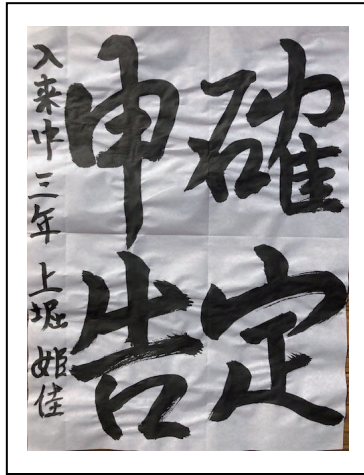 確定
申告
入来中三年 上堀 姫佳